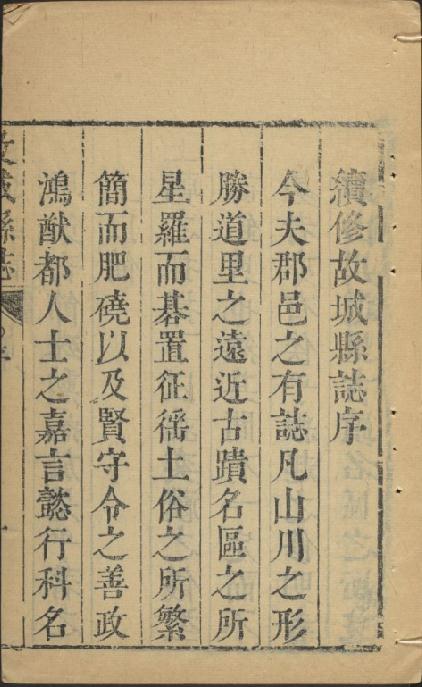 續修故城縣誌序
今夫郡邑之有誌凡山川之形
勝道里之遠近古蹟名區之所
星羅而碁置征徭土俗之所繁
簡而肥磽以及賢守令之善政
鴻猷都人士之嘉言懿行科名
故城縣誌